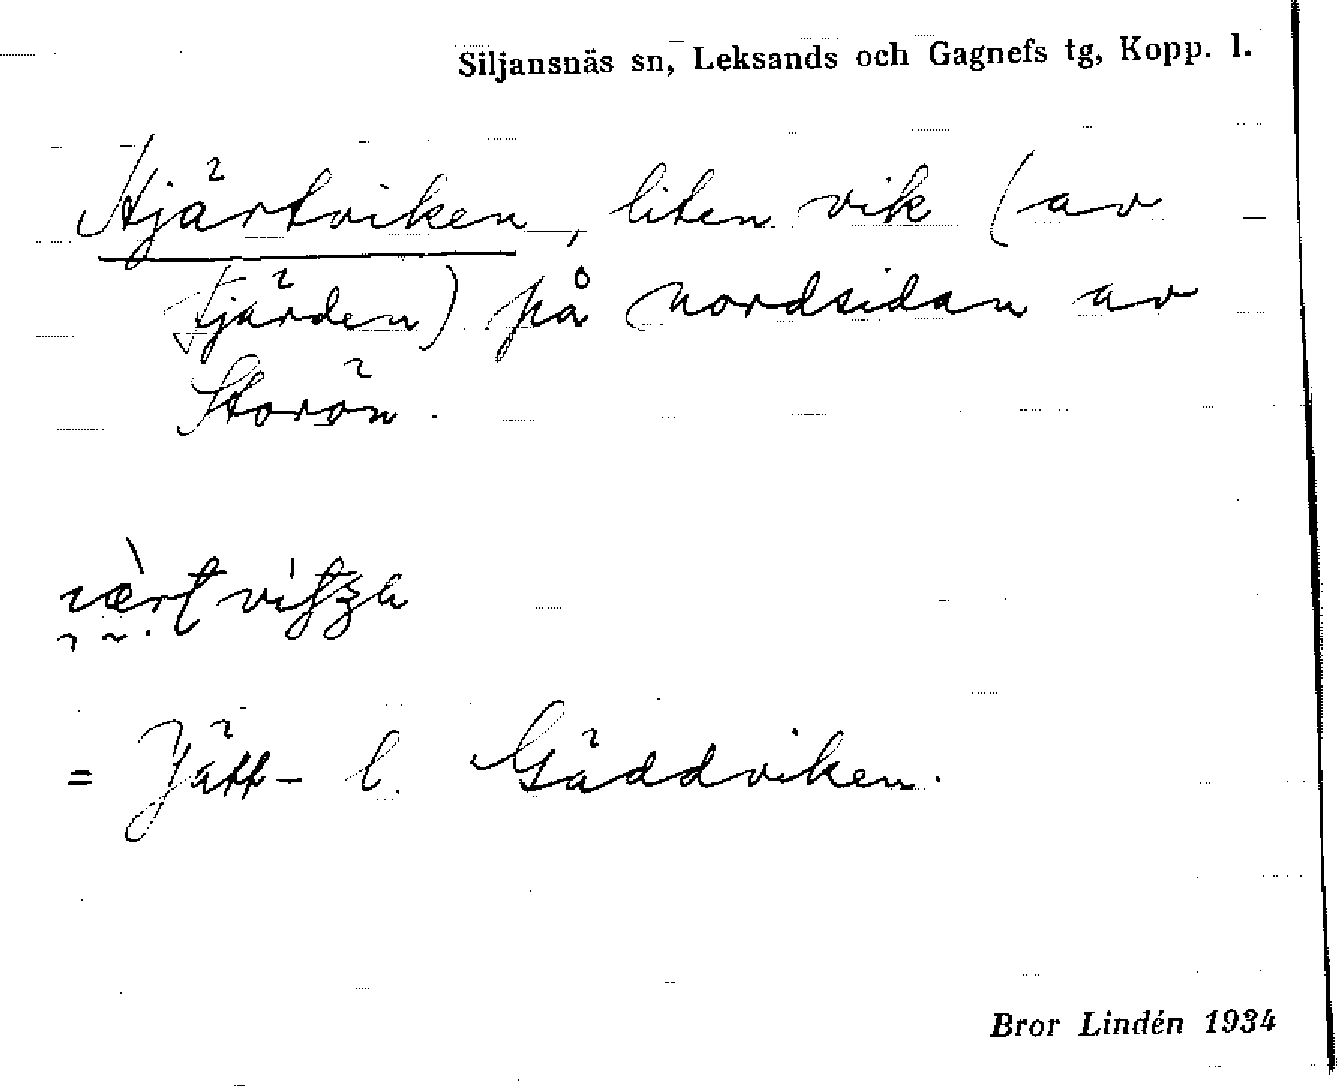 Siljansnäs sn, Leksands och Gagnefs tg, Kopp. l.
Hjärtviken, liten vik (av
Fjärden) på nordsidan av
Storön.
= Jätt- l. Gäddviken.
Bror Lindén 1934